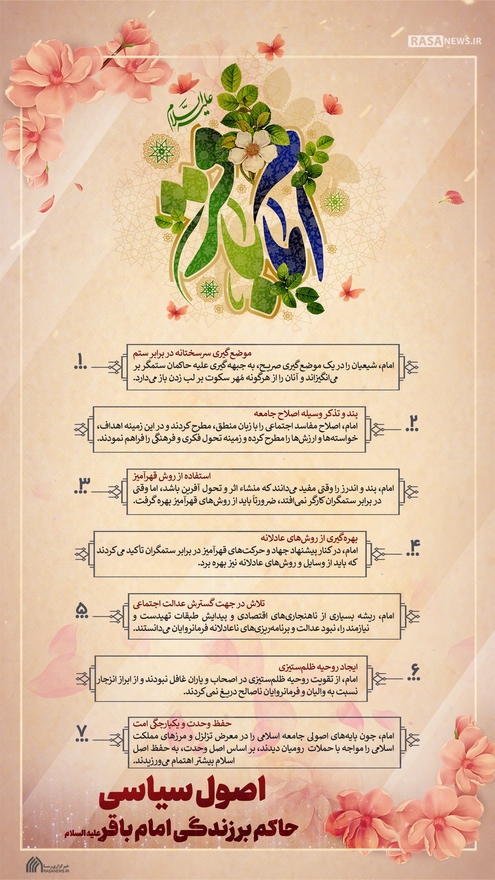 RASANEWS.IR
امام باقر
علیه السلام
۱...
موضع‌گیری سرسختانه در برابر ستم
امام، شیعیان را در یک موضع‌گیری صریح، به جبهه‌گیری علیه حاکمان ستمگر بر
می‌انگیزاند و آنان را از هرگونه مُهر سکوت بر لب زدن باز می‌دارد.
۲...
پند و تذکر وسیله اصلاح جامعه
امام، اصلاح مفاسد اجتماعی را با زبان منطق، مطرح کردند و در این زمینه اهداف،
خواسته‌ها و ارزش‌ها را مطرح کرده و زمینه تحول فکری و فرهنگی را فراهم نمودند.
۳...
استفاده از روش قهرآمیز
امام، پند و اندرز را وقتی مفید می‌دانند که منشاء اثر و تحول آفرین باشد، اما وقتی
در برابر ستمگران کارگر نمی‌افتد، ضرورتاً باید از روش‌های قهرآمیز بهره گرفت.
۴...
بهره‌گیری از روش‌های عادلانه
امام، در کنار پیشنهاد جهاد و حرکت‌های قهرآمیز در برابر ستمگران تأکید می کردند
که باید از وسایل و روش‌های عادلانه نیز بهره برد.
۵...
تلاش در جهت گسترش عدالت اجتماعی
امام، ریشه بسیاری از ناهنجاری‌های اقتصادی و پیدایش طبقات تهیدست و
نیازمند را، نبود عدالت و برنامه‌ریزی‌های ناعادلانه فرمانروایان می‌دانستند.
۶...
ایجاد روحیه ظلم‌ستیزی
امام، از تقویت روحیه ظلم‌ستیزی در اصحاب و یاران غافل نبودند و از ابراز انزجار
نسبت به والیان و فرمانروایان ناصالح دریغ نمی‌کردند.
۷...
حفظ وحدت و یکپارچگی امت
امام، چون پایه‌های اصولی جامعه اسلامی را در معرض تزلزل و مرزهای مملکت
اسلامی را مواجه با حملات رومیان دیدند، بر اساس اصل وحدت، به حفظ اصل
اسلام بیشتر اهتمام می‌ورزیدند.
اصول سیاسی
حاکم بر زندگی امام باقر علیه السلام
خبرگزاری رسا
RASANEWS.IR